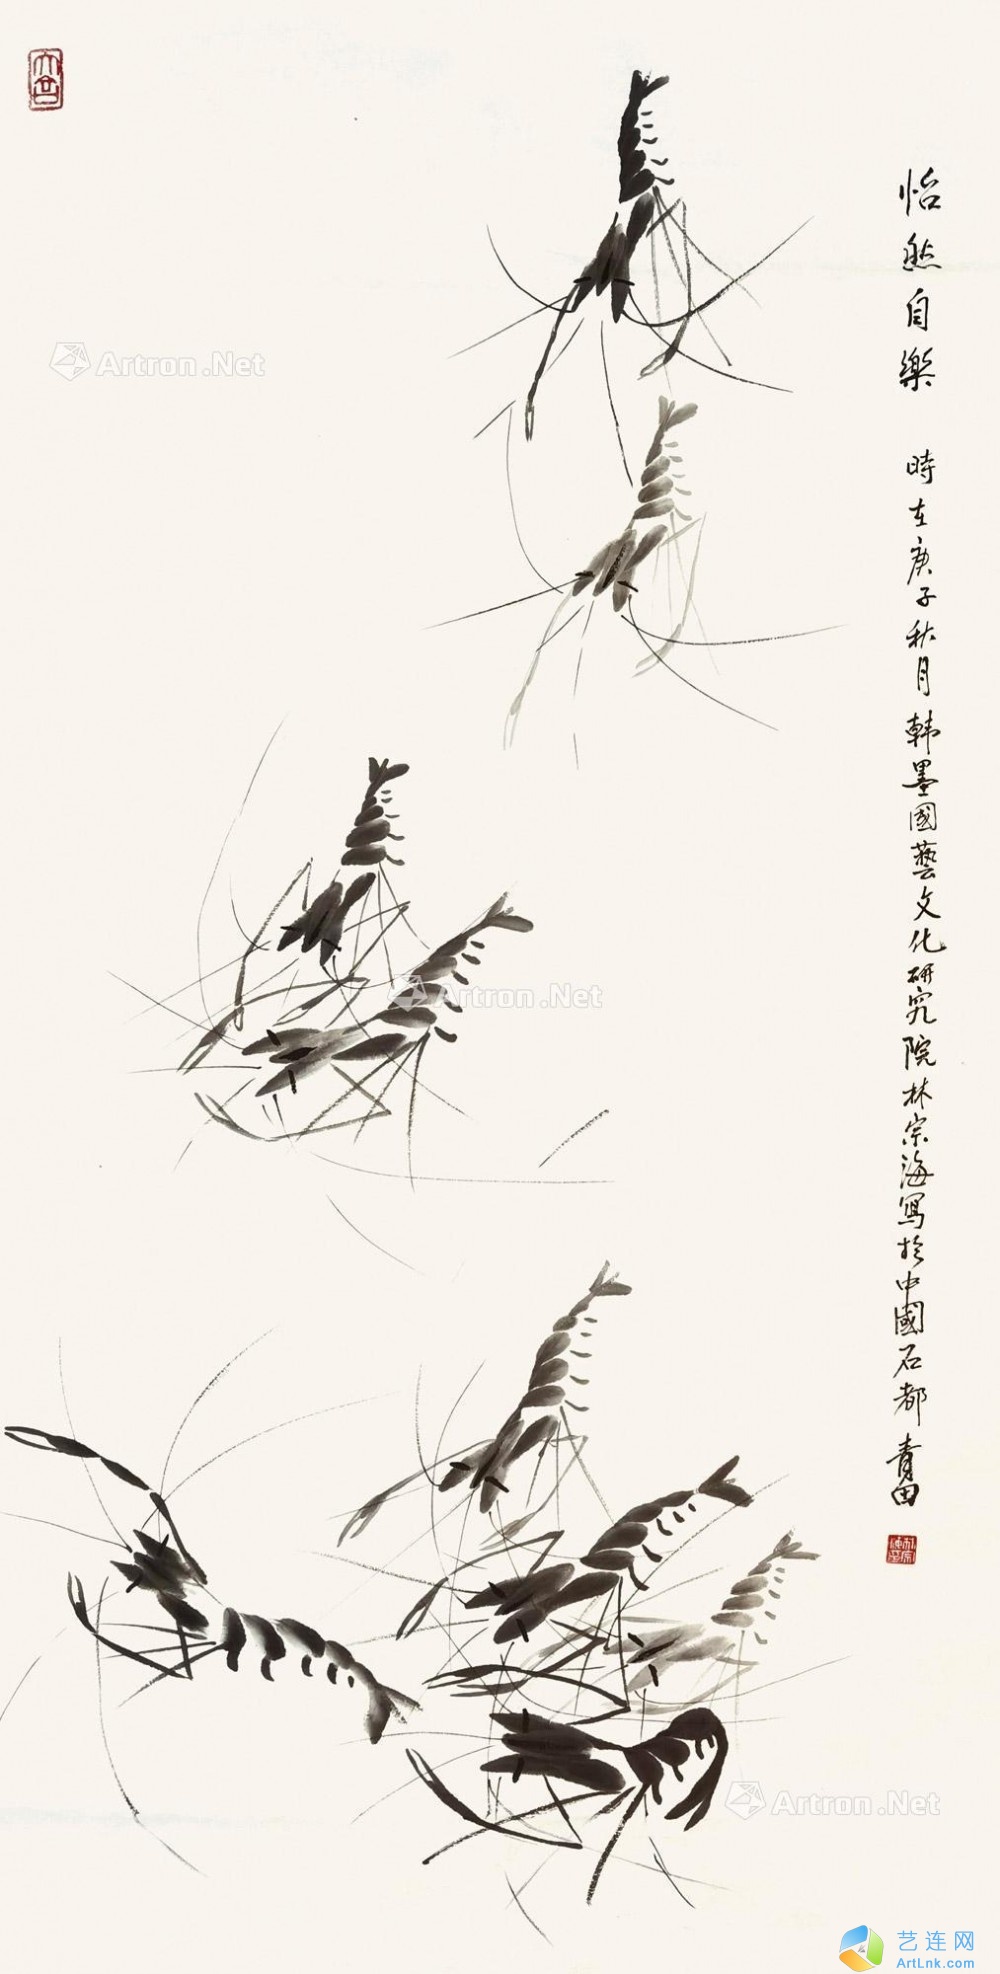 怡然自樂
時在庚子秋月韩墨國藝文化研究院林宗海寫於中國石都青田
Artron.Net
Artron.Net
Artron.Net
艺连网
ArtLnk.com